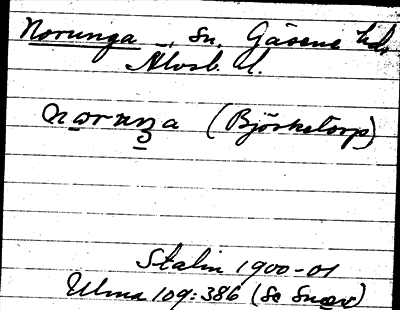 Norunga, sn, Gäsene hd,
Älvsb. l.
norunga (Björketorp)
Stalin 1900-01
Ulma 109:386 (Se Snov)